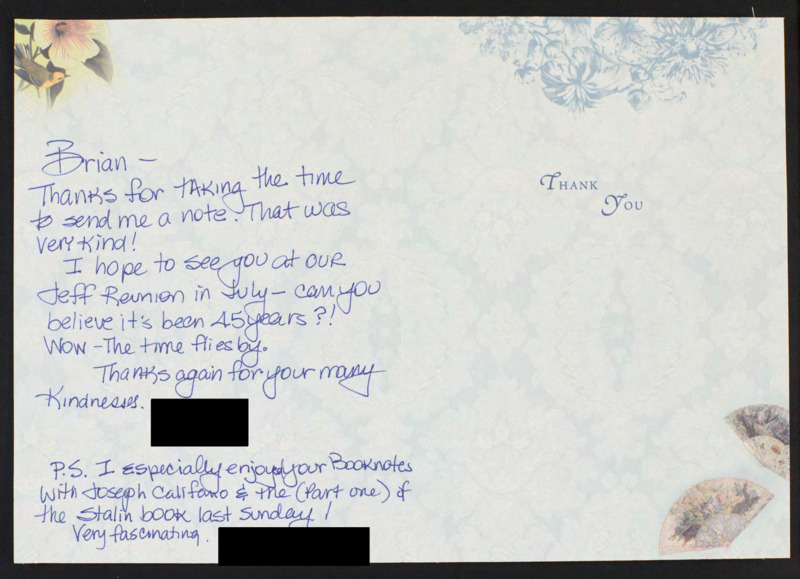 Brian –
Thanks for taking the time
to send me a note. That was
very kind!
I hope to see you at our
Jeff Reunion in July – can you
believe it's been 45 years?!
Wow – The time flies by.
Thanks again for your many
Kindnesses.
P.S. I especially enjoyed your Booknotes
with Joseph Califano & the (Part one) of
the Stalin book last Sunday!
Very fascinating.
THANK
YOU